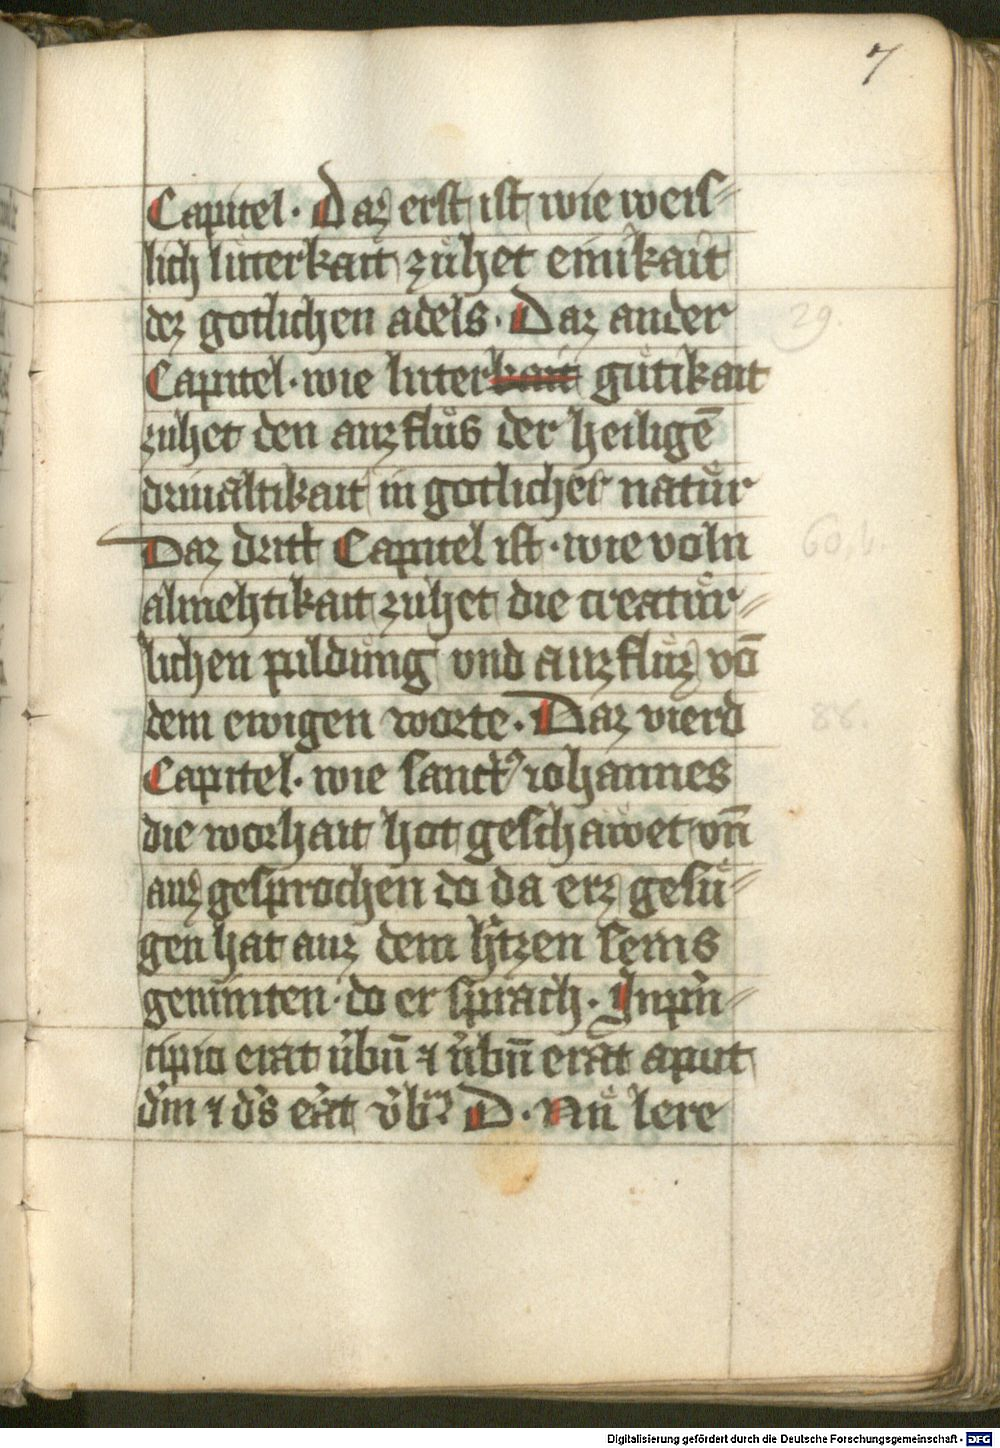 7
Capitel. Daz erst ist wie weis-
lich luterkait zuͤhet einikait
dez gotlichen adels. Daz ander
Capitel. wie luter kait guͤtikait
zuhet den auzfluͦs der heiligē
driualtikait in gotlicher natuͦr
Daz dritt Capitel ist. wie voln
almehtikait zuhet die creatuͦr-
lichen pilduͦng vnd auzfluͦz vō
dem ewigen worte. Daz vierd
Capitel. wie sanctꝰ iohannes
die worhait hot geschawet vn̄
auz gesprochen do da erz gesuͦ-
gen hat auz dem h̓tzen seins
geminten. do er sprach. Inpͥn-
cipio erat v̓bū ⁊ v̓bū erat aput
d̓m ⁊ d̓s er̓at v̓bū D. Nuͦ lere
29.
60,b.
88.
Digitalisierung gefördert durch die Deutsche Forschungsgemeinschaft - DFG